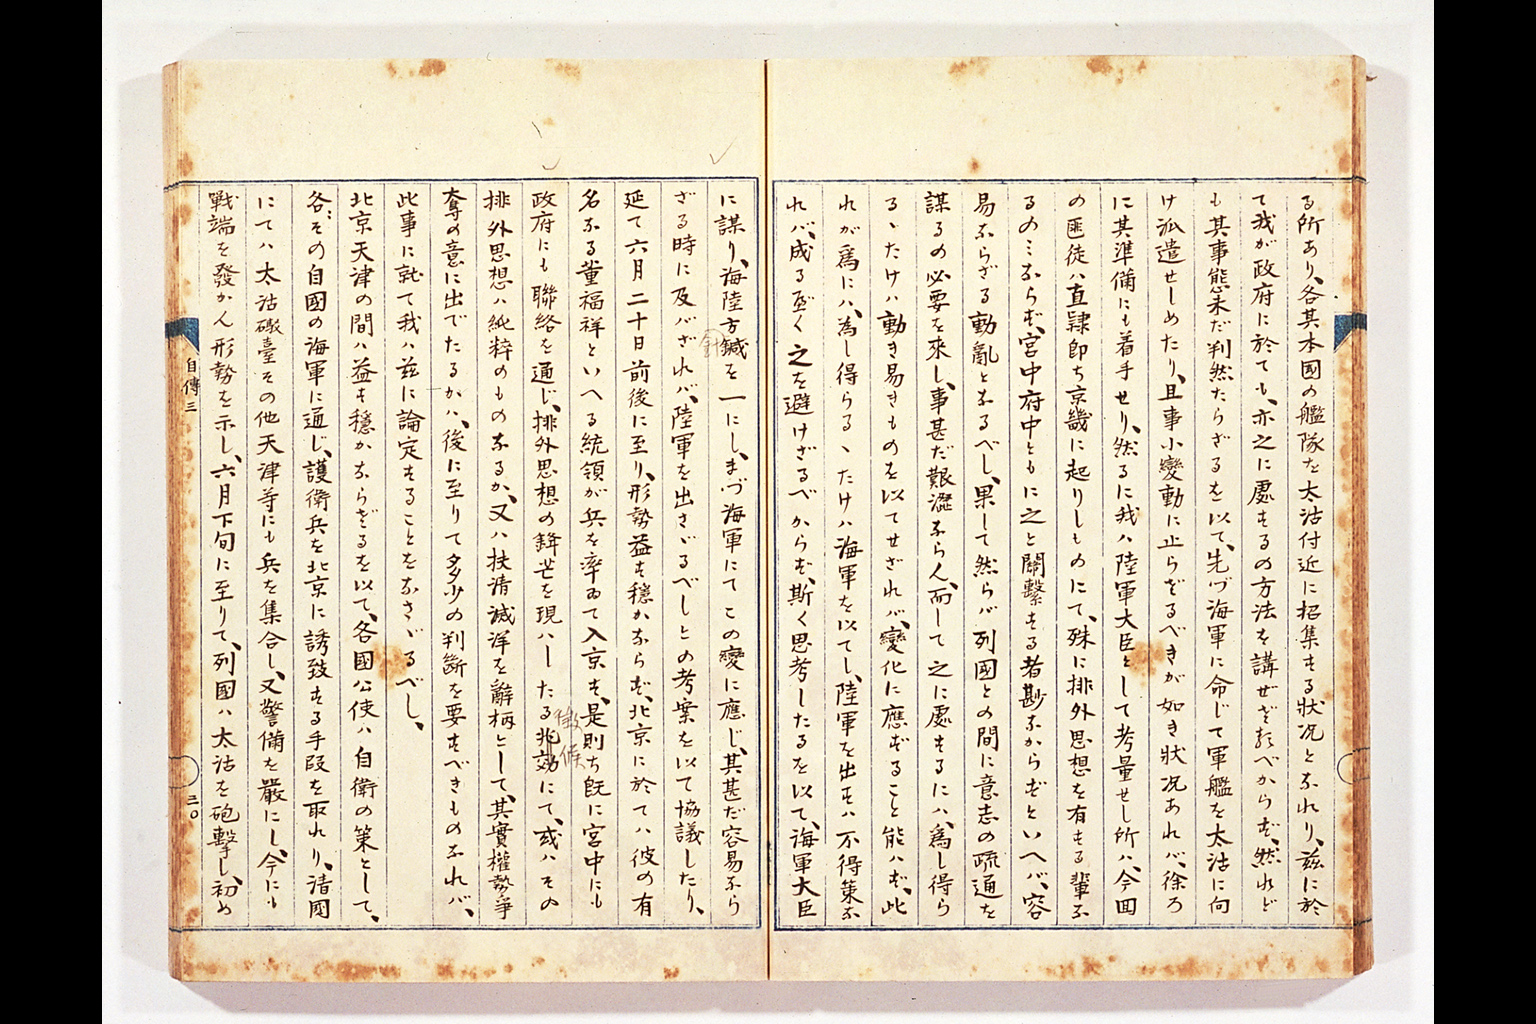 る所あり、各其本國の艦隊を太沽付近に招集する狀況となれり、茲に於
て我が政府に於ても、亦之に處するの方法を講ぜざるべからず、然れど
も其事態未だ判然たらざるを以て、先づ海軍に命じて軍艦を太沽に向
け派遣せしめたり、且事小變動に止らざるべきが如き狀况あれバ、徐ろ
に其準備にも着手せり、然るに我ハ陸軍大臣として考量せし所ハ、今回
の匪徒ハ直隷即ち京畿に起りしものにて、殊に排外思想を有する輩な
るのミならず、宮中府中ともに之と關繫する者尠なからずといへバ、容
易ならざる動亂となるべし、果して然らバ列國との間に意志の疏通を
謀るの必要を來し、事甚だ艱澀ならん、而して之に處するにハ、爲し得ら
るゝたけハ動き易きものを以てせざれバ、變化に應ずること能ハず、此
れが爲にハ、為し得らるゝたけハ海軍を以てし、陸軍を出すハ不得策な
れバ、成るべく之を避けざるべからず、斯く思考したるを以て、海軍大臣
に謀り、海陸方鍼を一にし、まづ海軍にてこの變に應じ、其甚だ容易なら
針
ざる時に及バざれバ、陸軍を出さゞるべしとの考案を以て協議したり、
延て六月二十日前後に至り、形勢益す穩かならず、北京に於てハ彼の有
名なる董福祥といへる統領が兵を率ゐて入京す、是則ち既に宮中にも
政府にも聯絡を通じ、排外思想の鋒芒を現ハしたる兆効にて、或ハその
徴候
排外思想ハ純粹のものなるか、又ハ扶清滅洋を辭柄として、其實權勢爭
奪の意に出でたるかハ、後に至りて多少の判斷を要すべきものなれバ、
此事に就て我ハ茲に論定することをなさゞるべし、
北京天津の間ハ益す穩かならざるを以て、各國公使ハ自衛の策として、
各〻その自國の海軍に通じ、護衛兵を北京に誘致する手段を取れり、清國
にてハ太沽礮臺その他天津等にも兵を集合し、又警備を嚴にし、今にも
戰端を發かん形勢を示し、六月下旬に至りて、列國ハ太沽を砲擊し、初め
自傳三
三〇